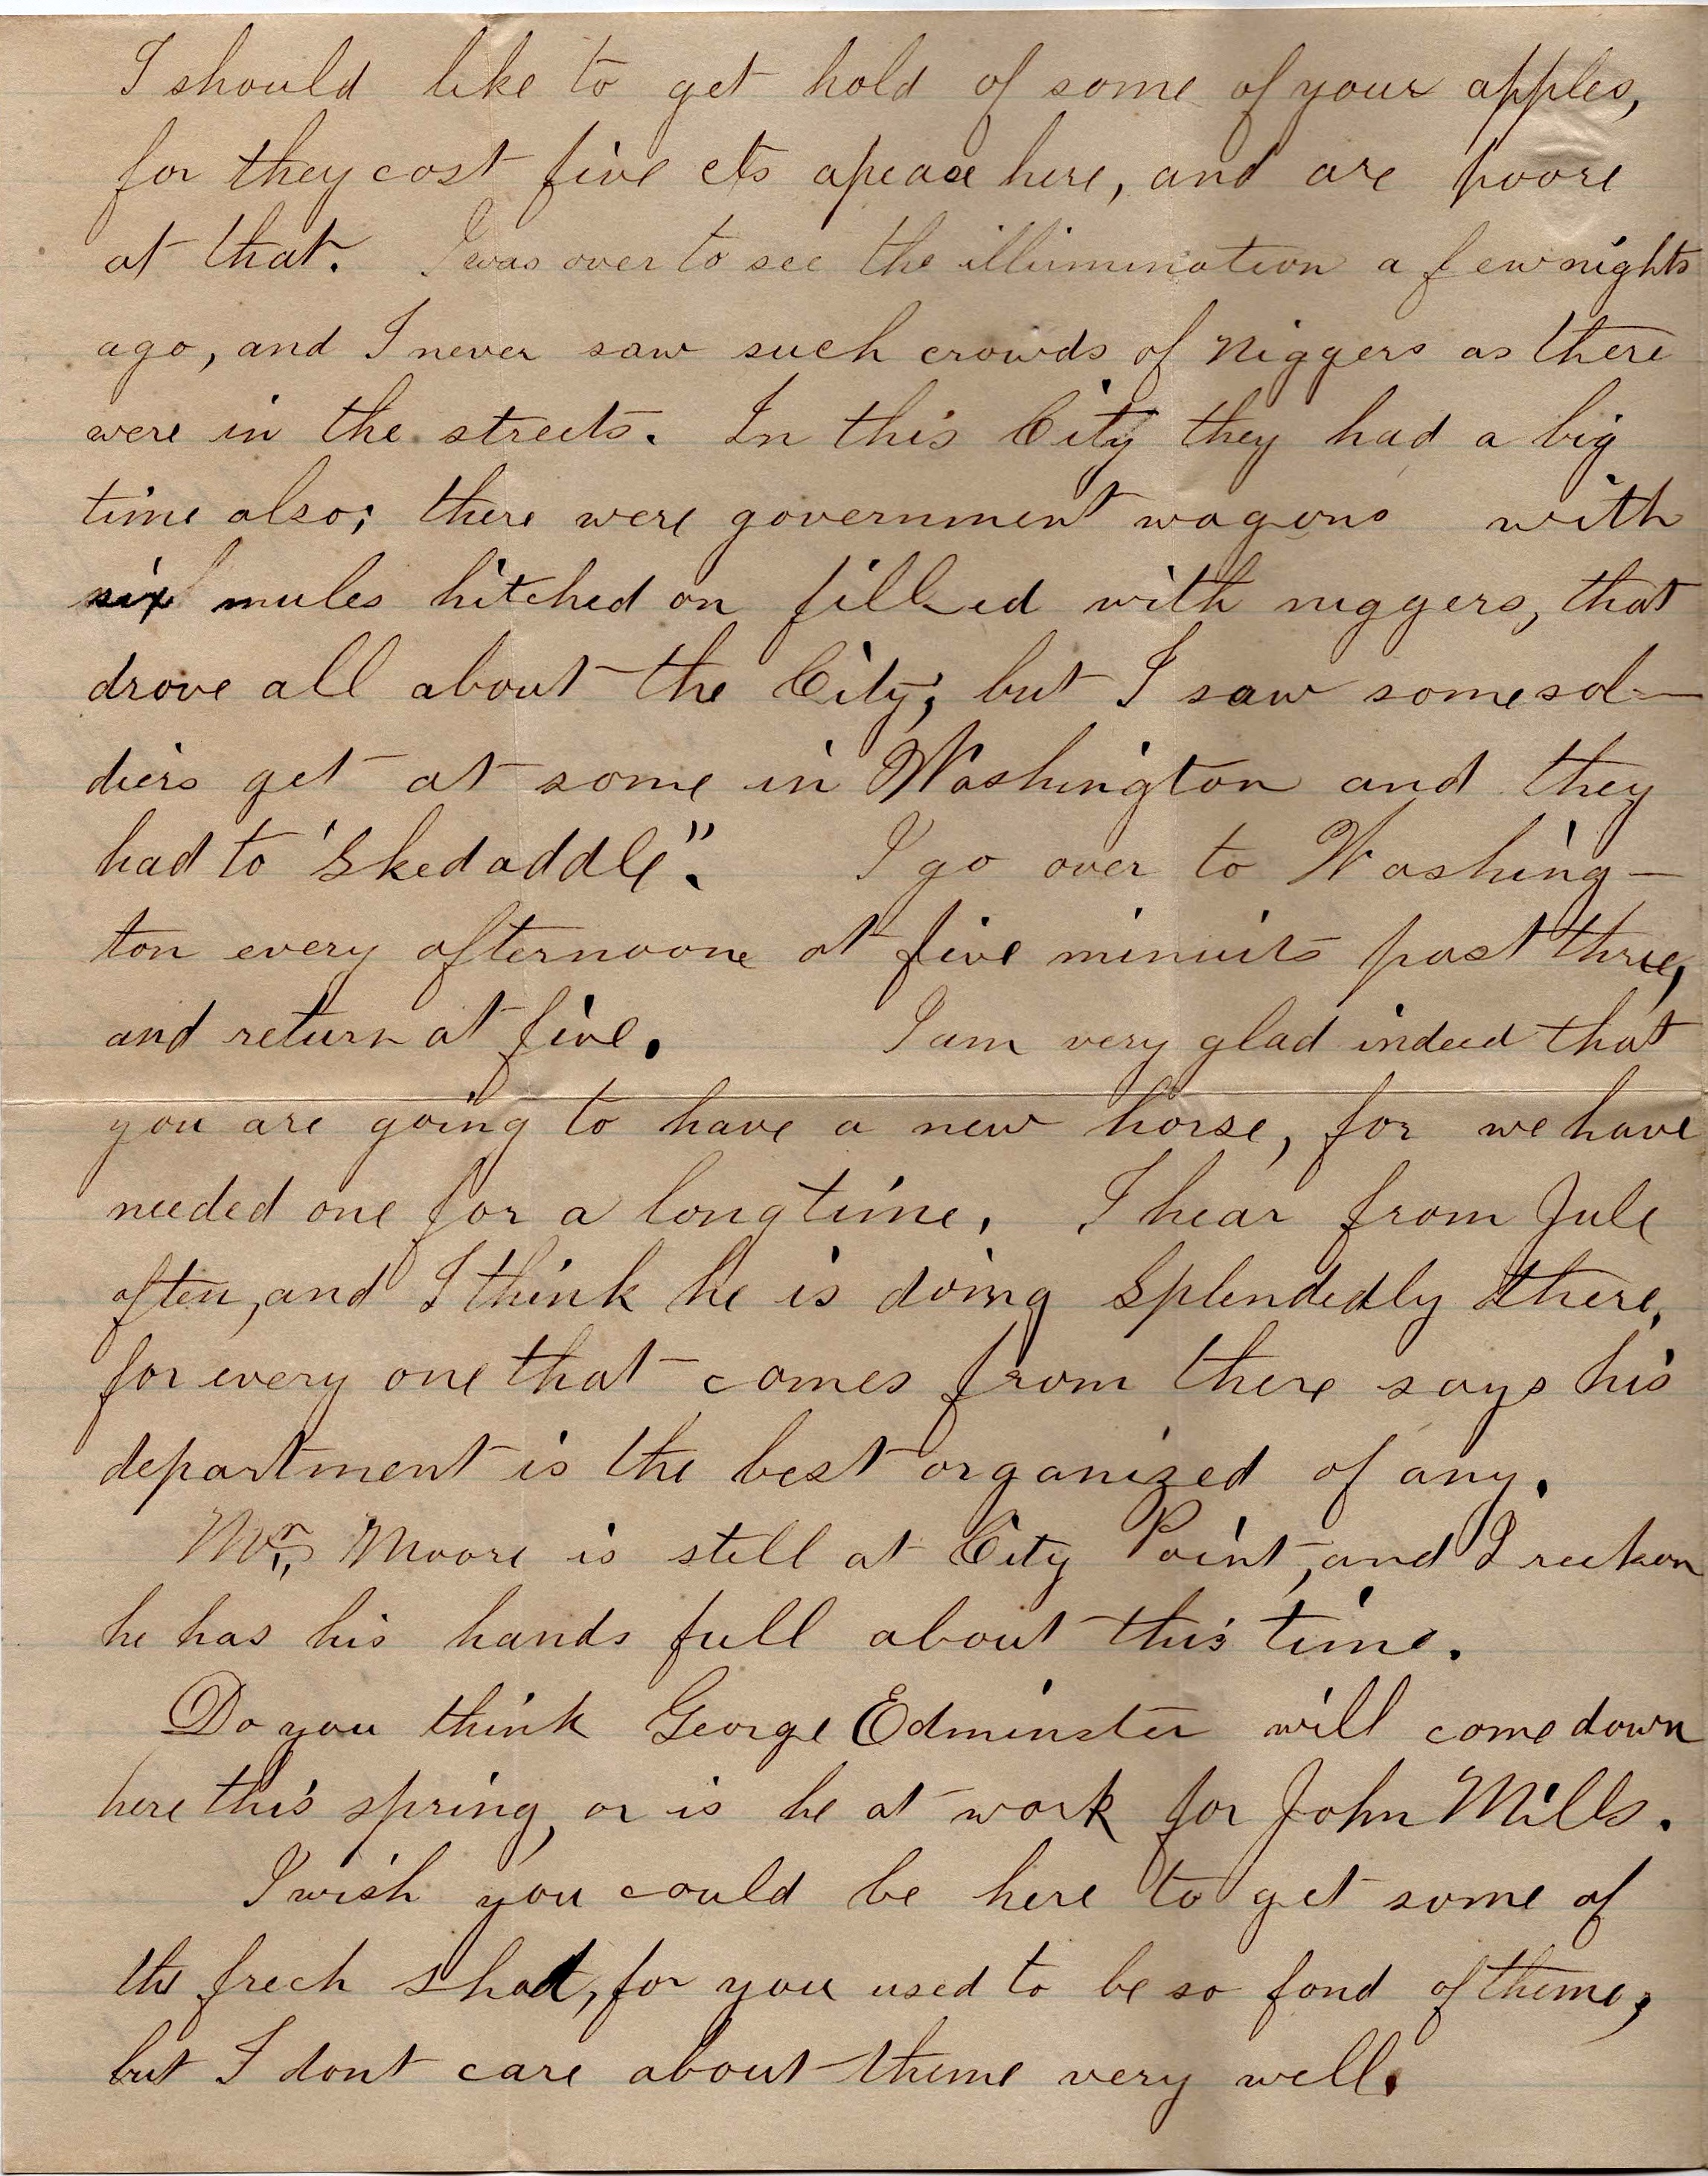 I should like to get hold of some of your apples,
for they cost five cts apeace here, and are poore
at that. I was over to see the illimination a few nights
ago, and I never saw such crowds of niggers as there
were in the streets. In this City they had a big
time also; there were government wagons with
six mules hitched on filled with niggers, that
drove all about the City; but I saw some sol-
diers get at some in Washington and they
had to "Skedaddle". I go over to Washing-
ton every afternoone at five minuits past three,
and return at five. I am very glad indeed that
you are going to have a new horse, for we have
needed one for a long time. I hear from Jule
often, and I think he is doing splendedly there,
for every one that comes from there says his
department is the best organized of any.
Mr. Moore is still at City Point, and I reckon
he has his hands full about this time.
Do you think George Edminster will come down
here this spring, or is he at work for John Mills.
I wish you could be here to get some of
the frech shad, for you used to be so fond of theme;
but I dont care about theme very well.